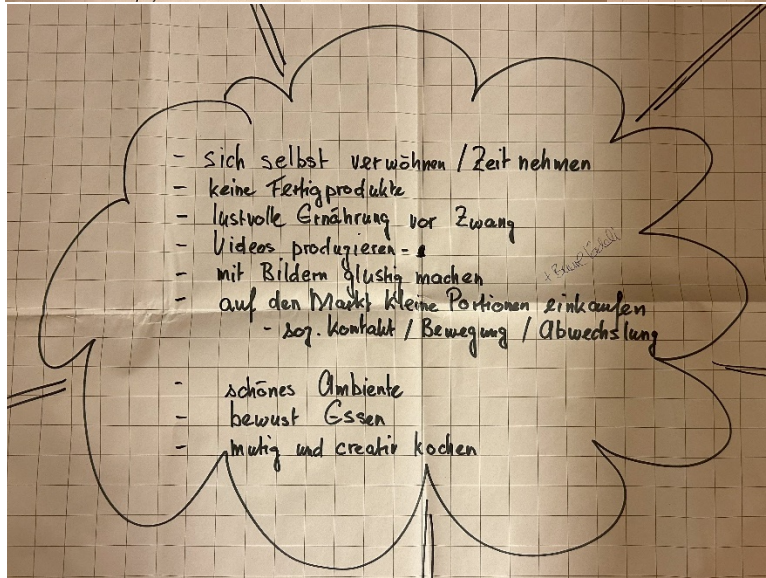 - sich selbst verwöhnen / Zeit nehmen
- keine Fertigprodukte
- lustvolle Ernährung vor Zwang
- Videos produzieren -
- mit Bildern glustig machen
- auf den Markt kleine Portionen einkaufen
- soz. Kontakt / Bewegung / Abwechslung
- schönes Ambiente
- bewust Essen
- mutig und creativ kochen